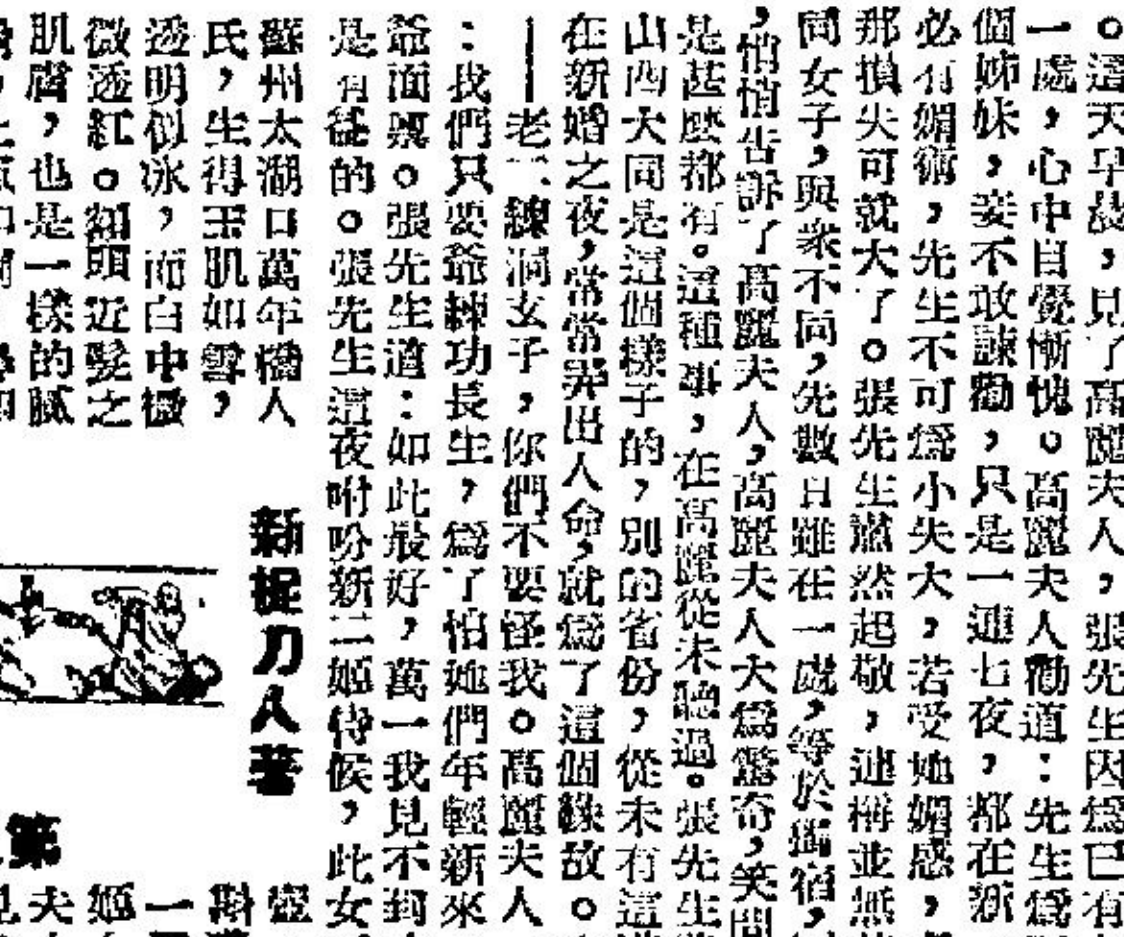 。這天早晨，見了高麗夫人，張先生因爲已有
一處，心中自覺慚愧。高麗夫人勸道：先生爲
個姊妹，妾不敢諫勸，只是一連七夜，都在新
必有媚術，先生不可爲小失大，若受她媚惑，
那損失可就大了。張先生肅然起敬，連稱並無
同女子，與衆不同，先數日雖在一處，等於獨宿，
，悄悄告訴了高麗夫人，高麗夫人大爲驚奇，笑問
是甚麼都有。這種事，在高麗從未聽過。張先生
山西大同是這個樣子的，別的省份，從未有這
在新婚之夜，常常弄出人命，就爲了這個緣故。
——老二練洞玄子，你們不要怪我。高麗夫人
：我們只要爺練功長生，爲了怕她們年輕新來
爺面稟。張先生道：如此最好，萬一我見不到
是有徒的。張先生這夜吩咐新二姬侍候，此女
蘇州太湖口萬年橋人
氏，生得玉肌如雪，
透明似冰，而白中微
微透紅。額頭近髮之
肌膚，也是一樣的膩
新捉刀人著
第
壺
斟
一
姬
夫